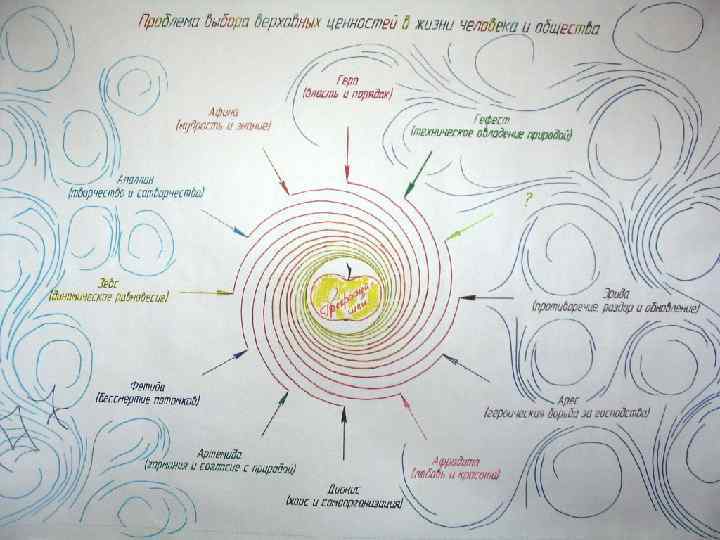 Проблема выбора верховных ценностей в жизни человека и общества
Гера
(власть и порядок)
Гефест
(техническое овладение природой)
?
Эрида
(противоречие, раздор и обновление)
Арес
(героическая борьба за господство)
Афродита
(любовь и красота)
Дионис
(хаос и самоорганизация)
Артемида
(гармония и согласие с природой)
Фетида
(бессмертие потомков)
Зевс
(динамическое равновесие)
Аполлон
(творчество и сотворчество)
Афина
(мудрость и знание)
Прекрасней
шей